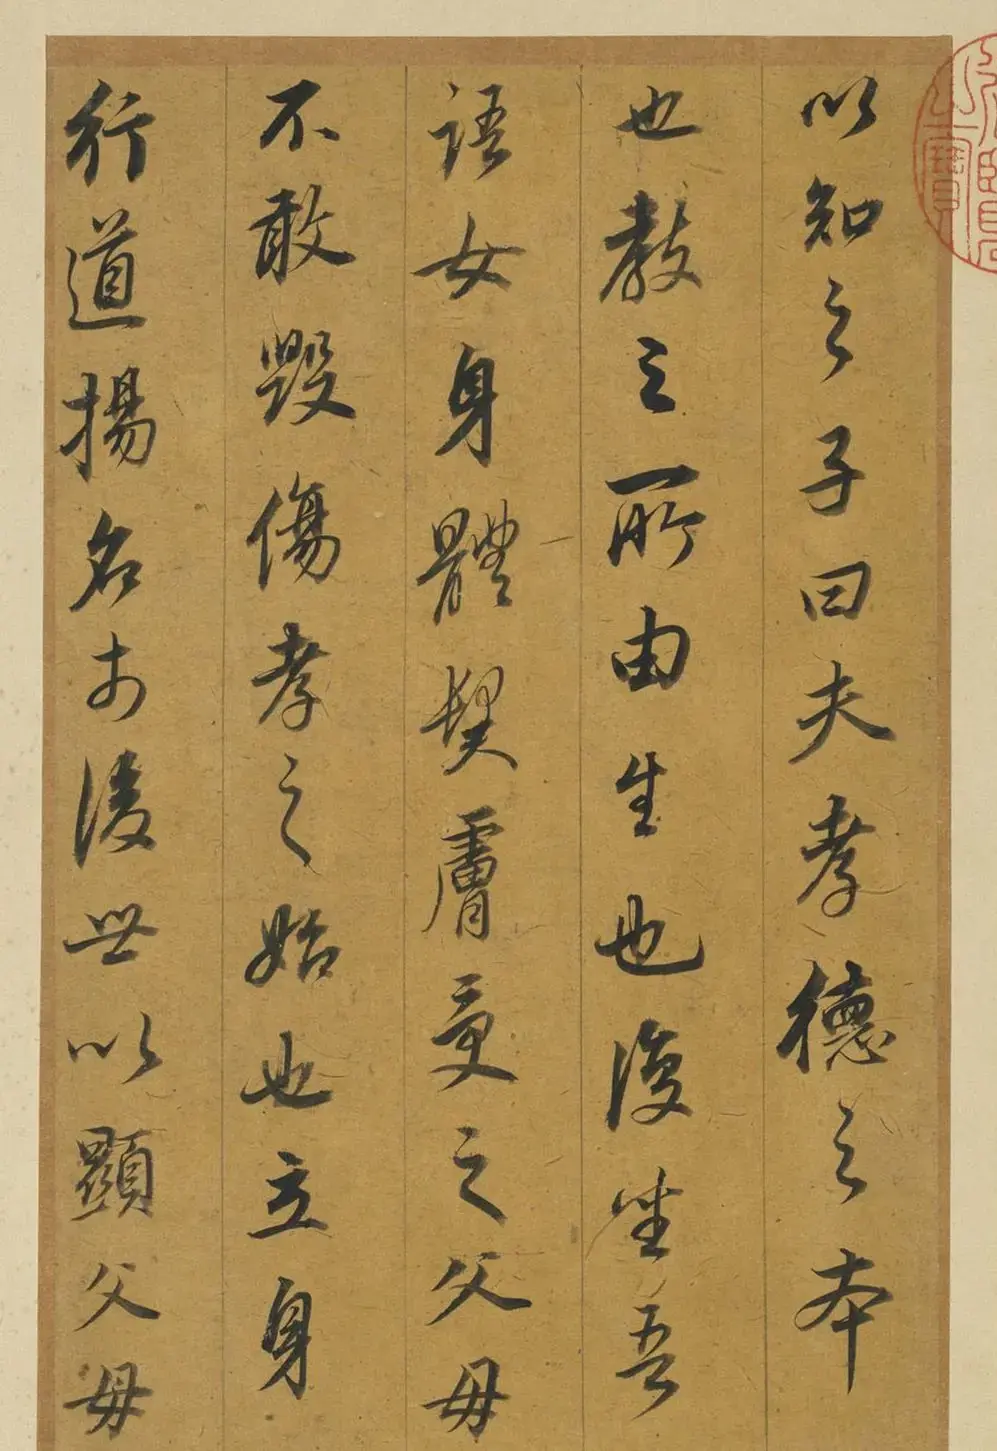 以知之子曰夫孝德之本
也教之所由生也復坐吾
語女身體髮膚受之父母
不敢毀傷孝之始也立身
行道揚名於後世以顯父母